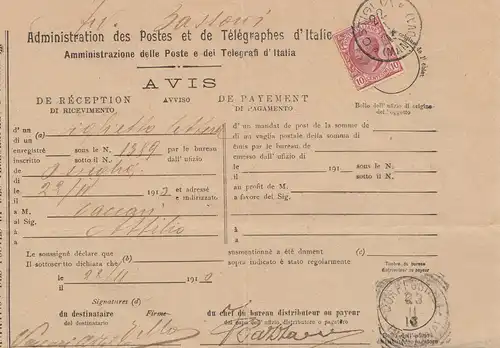 Administration des Postes et de Télégraphes d'Italie
Amministrazione delle Poste e dei Telegrafi d'Italia
AVIS
DE RÉCEPTION AVVISO DE PAYEMENT
DI RICEVIMENTO DI PAGAMENTO
Bollo dell'ufizio di origine
dell'oggetto
d'un (a) d'un mandat de post de la somme de
di un di un vaglia postale della somma di
enregistré sous le N. 1289 par le bureau émis par le bureau de
inscritto sotto il N. dal l'ufizio emesso dall' ufizio di
de
di
le 22/11 1913 et adressé le 191 sous le N.
il e indirizzato il sotto il N.
à M. Vaccari au profit de M.
al Sig. Attilio a favore del Sig.
à à
a a
Le soussigné déclare que (b) susmentionné a été dument (c)
Il sottoscritto dichiara che sopra indicato è stato regolarmente
le 22/11 191
il
Timbre du bureau
distributeur ou payeur
Signatures (d)
du destinataire Firme du chef du bureau distributeur ou payeur
del destinatario del capo dell'ufizio, distributore o pagatore
Bollo dell'ufizio
distributore o pagatore